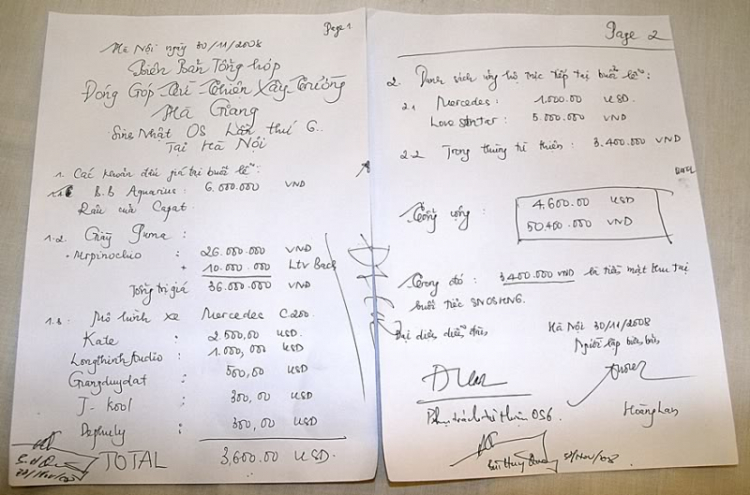 Page 1
Hà Nội ngày 30/11/2008
Biên Bản Tổng hợp
Đóng Góp Từ Thiện Xây Trường
Hà Giang
Sinh Nhật OS Lần thứ 6
Tại Hà Nội
1. Các khoản đấu giá tại buổi lễ:
B.B Aquarius: 6.000.000 VND
Râu của Capat.
1.2. Giầy Puma:
Mrpinochio : 26.000.000 VND
+ 10.000.000 Ltv Back
Tổng trị giá 36.000.000 VND
1.3. Mô hình xe Mercedes C200.
Kate : 2500,00 USD.
Longthinhaudio : 1.000,00 USD
Giangduydat : 500,00 USD
J-Kool : 300,00 USD
Dzphuly : 300,00 USD
TOTAL 3,600.00 USD.
30/Nov/08
Page 2
2. Danh sách ủng hộ trực tiếp tại buổi lễ:
2.1 Mercedes: 1.000.00 USD.
5.000.000 VND
2.2 Trong thùng từ thiện: 3.400.000 VND
Tổng cộng: 4.600.00 USD
50.400.000 VND
Trong đó: 3.400.000 VND là tiền mặt thu tại
buổi tiệc SNOSHNG.
Đại diện diễn đàn,
Hà Nội 30/11/2008
Người lập biên bản,
Phụ trách từ thiện OS6.
Hoàng Lan
Bùi Huy 30/Nov/08